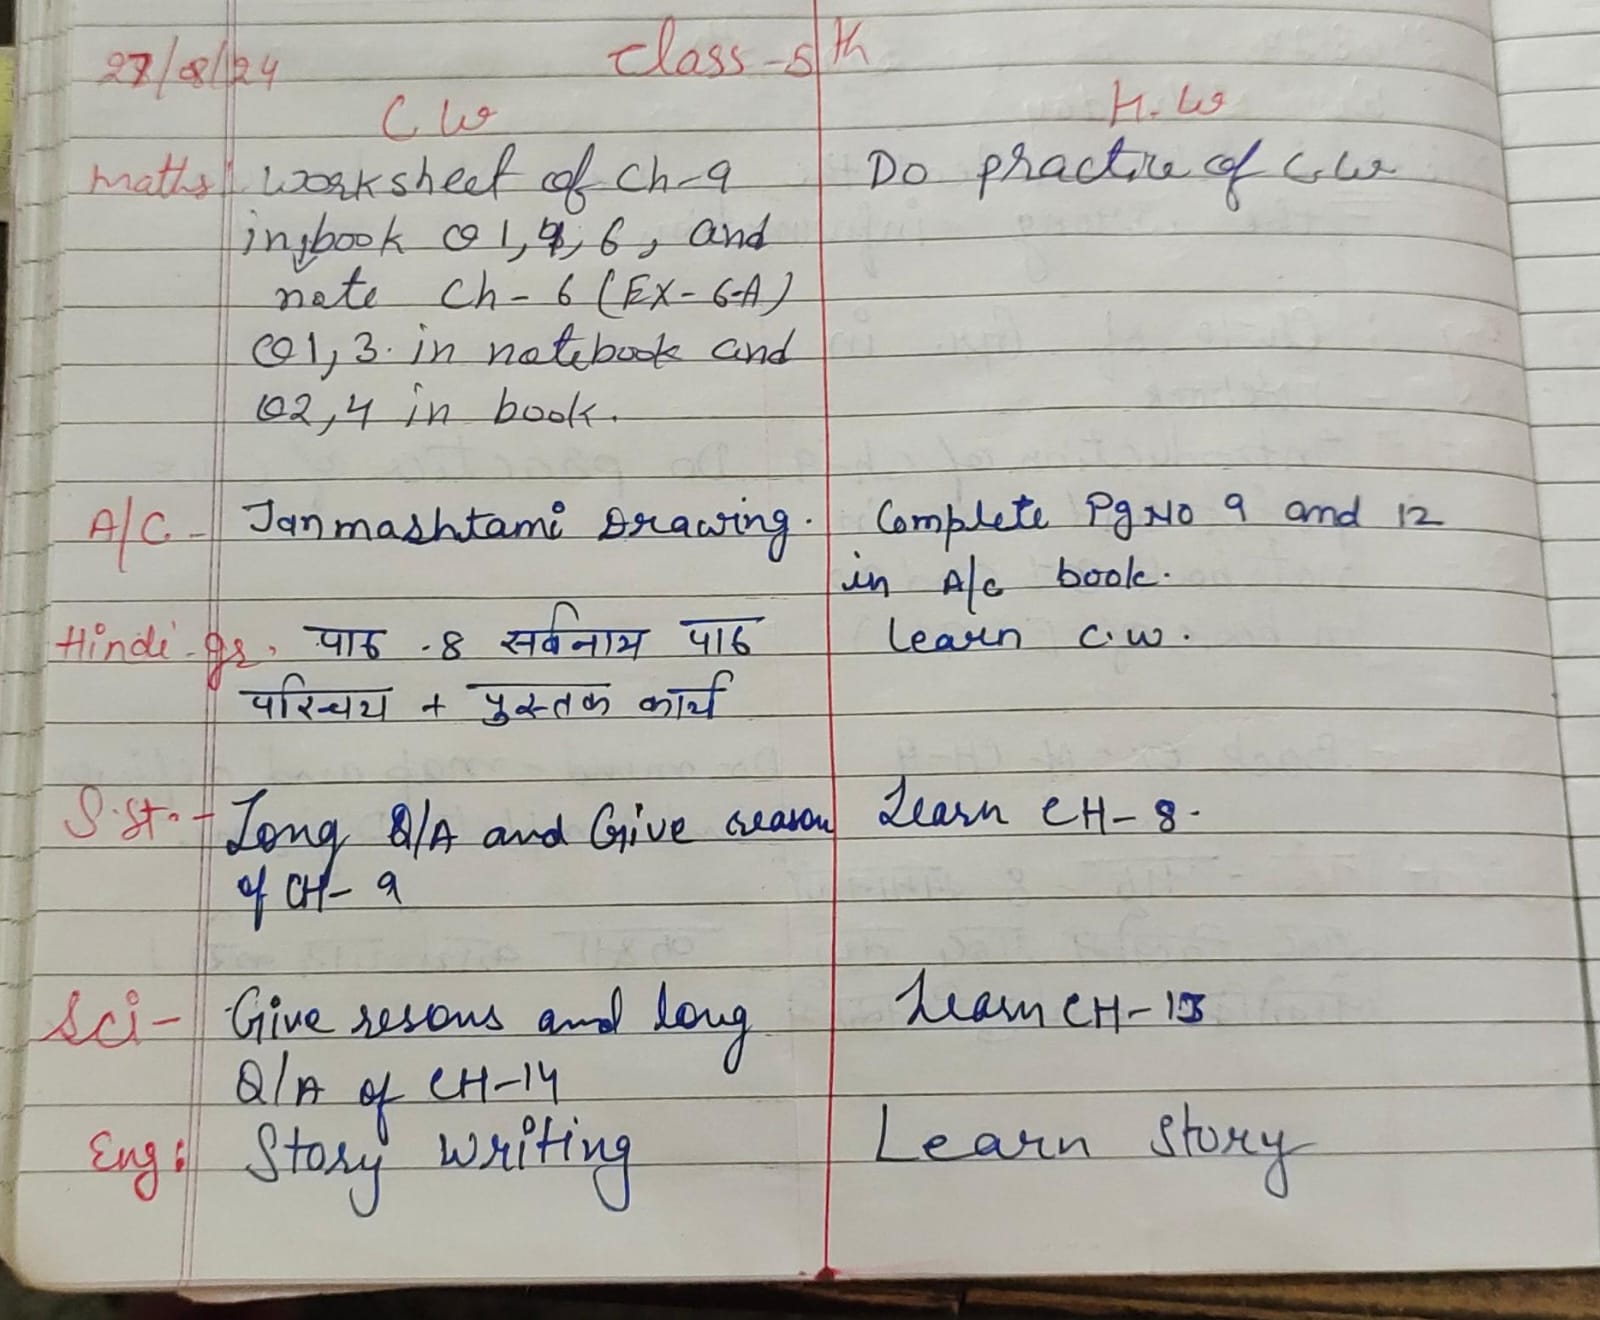 27/08/24 Class-5th
C W H.W
Maths worksheet of Ch-9 Do practice of C.W
in book Q1,4,6, and
note Ch-6 (EX-6-A)
Q1,3. in notebook and
Q2,4 in book.
A/C - Janmashtami Drawing. Complete Pg No 9 and 12
in A/c book.
Hindi gr. पाठ -8 सर्वनाम पाठ Learn C.W.
परिचय + पुस्तक कार्य
S.St. - Long Q/A and Give reason Learn CH-8.
of CH-9
Sci- Give resons and long Learn CH-13
Q/A of CH-14
Eng: Story writing Learn Story